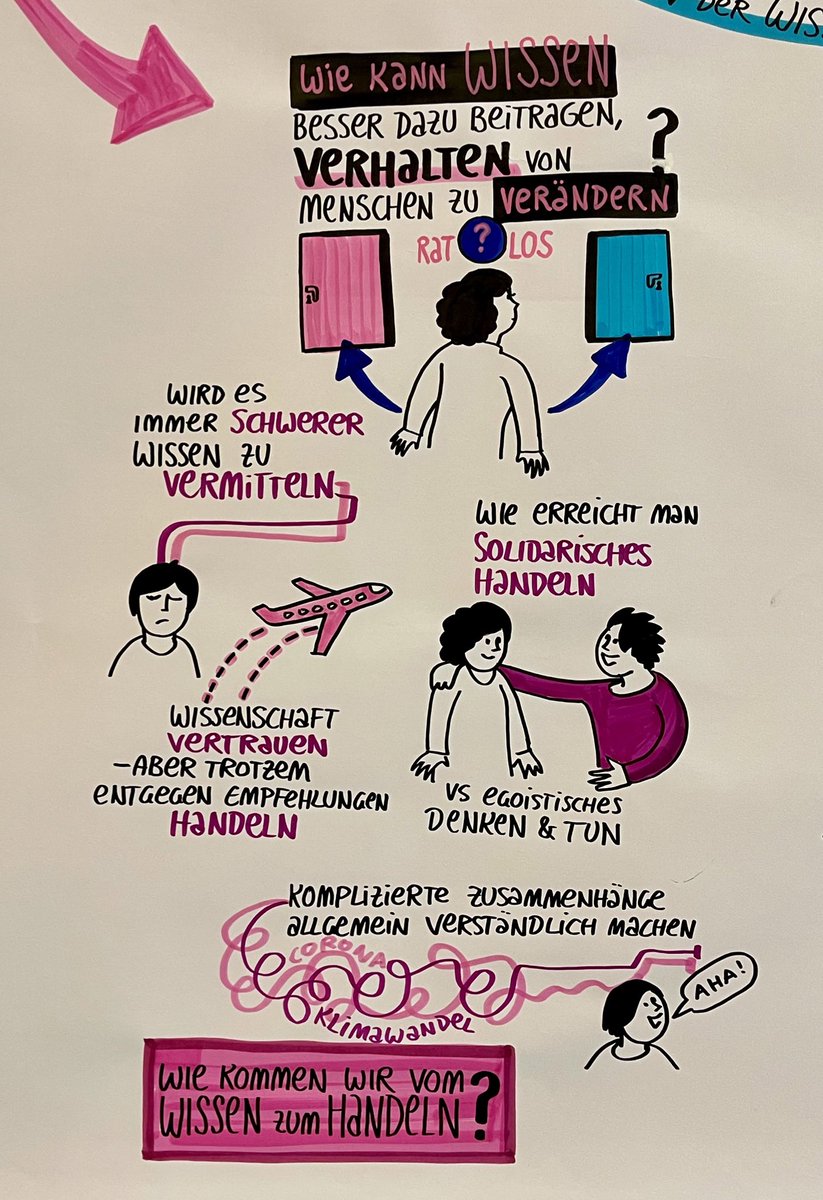 DER WISS
WIE KANN WISSEN
BESSER DAZU BEITRAGEN,
VERHALTEN VON
MENSCHEN ZU VERÄNDERN?
RAT ? LOS
WIRD ES
IMMER SCHWERER
WISSEN ZU
VERMITTELN
WIE ERREICHT MAN
SOLIDARISCHES
HANDELN
WISSENSCHAFT
VERTRAUEN
–ABER TROTZEM
ENTGEGEN EMPFEHLUNGEN
HANDELN
VS EGOISTISCHES
DENKEN & TUN
KOMPLIZIERTE ZUSAMMENHÄNGE
ALLGEMEIN VERSTÄNDLICH MACHEN
CORONA
KLIMAWANDEL
AHA!
WIE KOMMEN WIR VOM
WISSEN ZUM HANDELN?